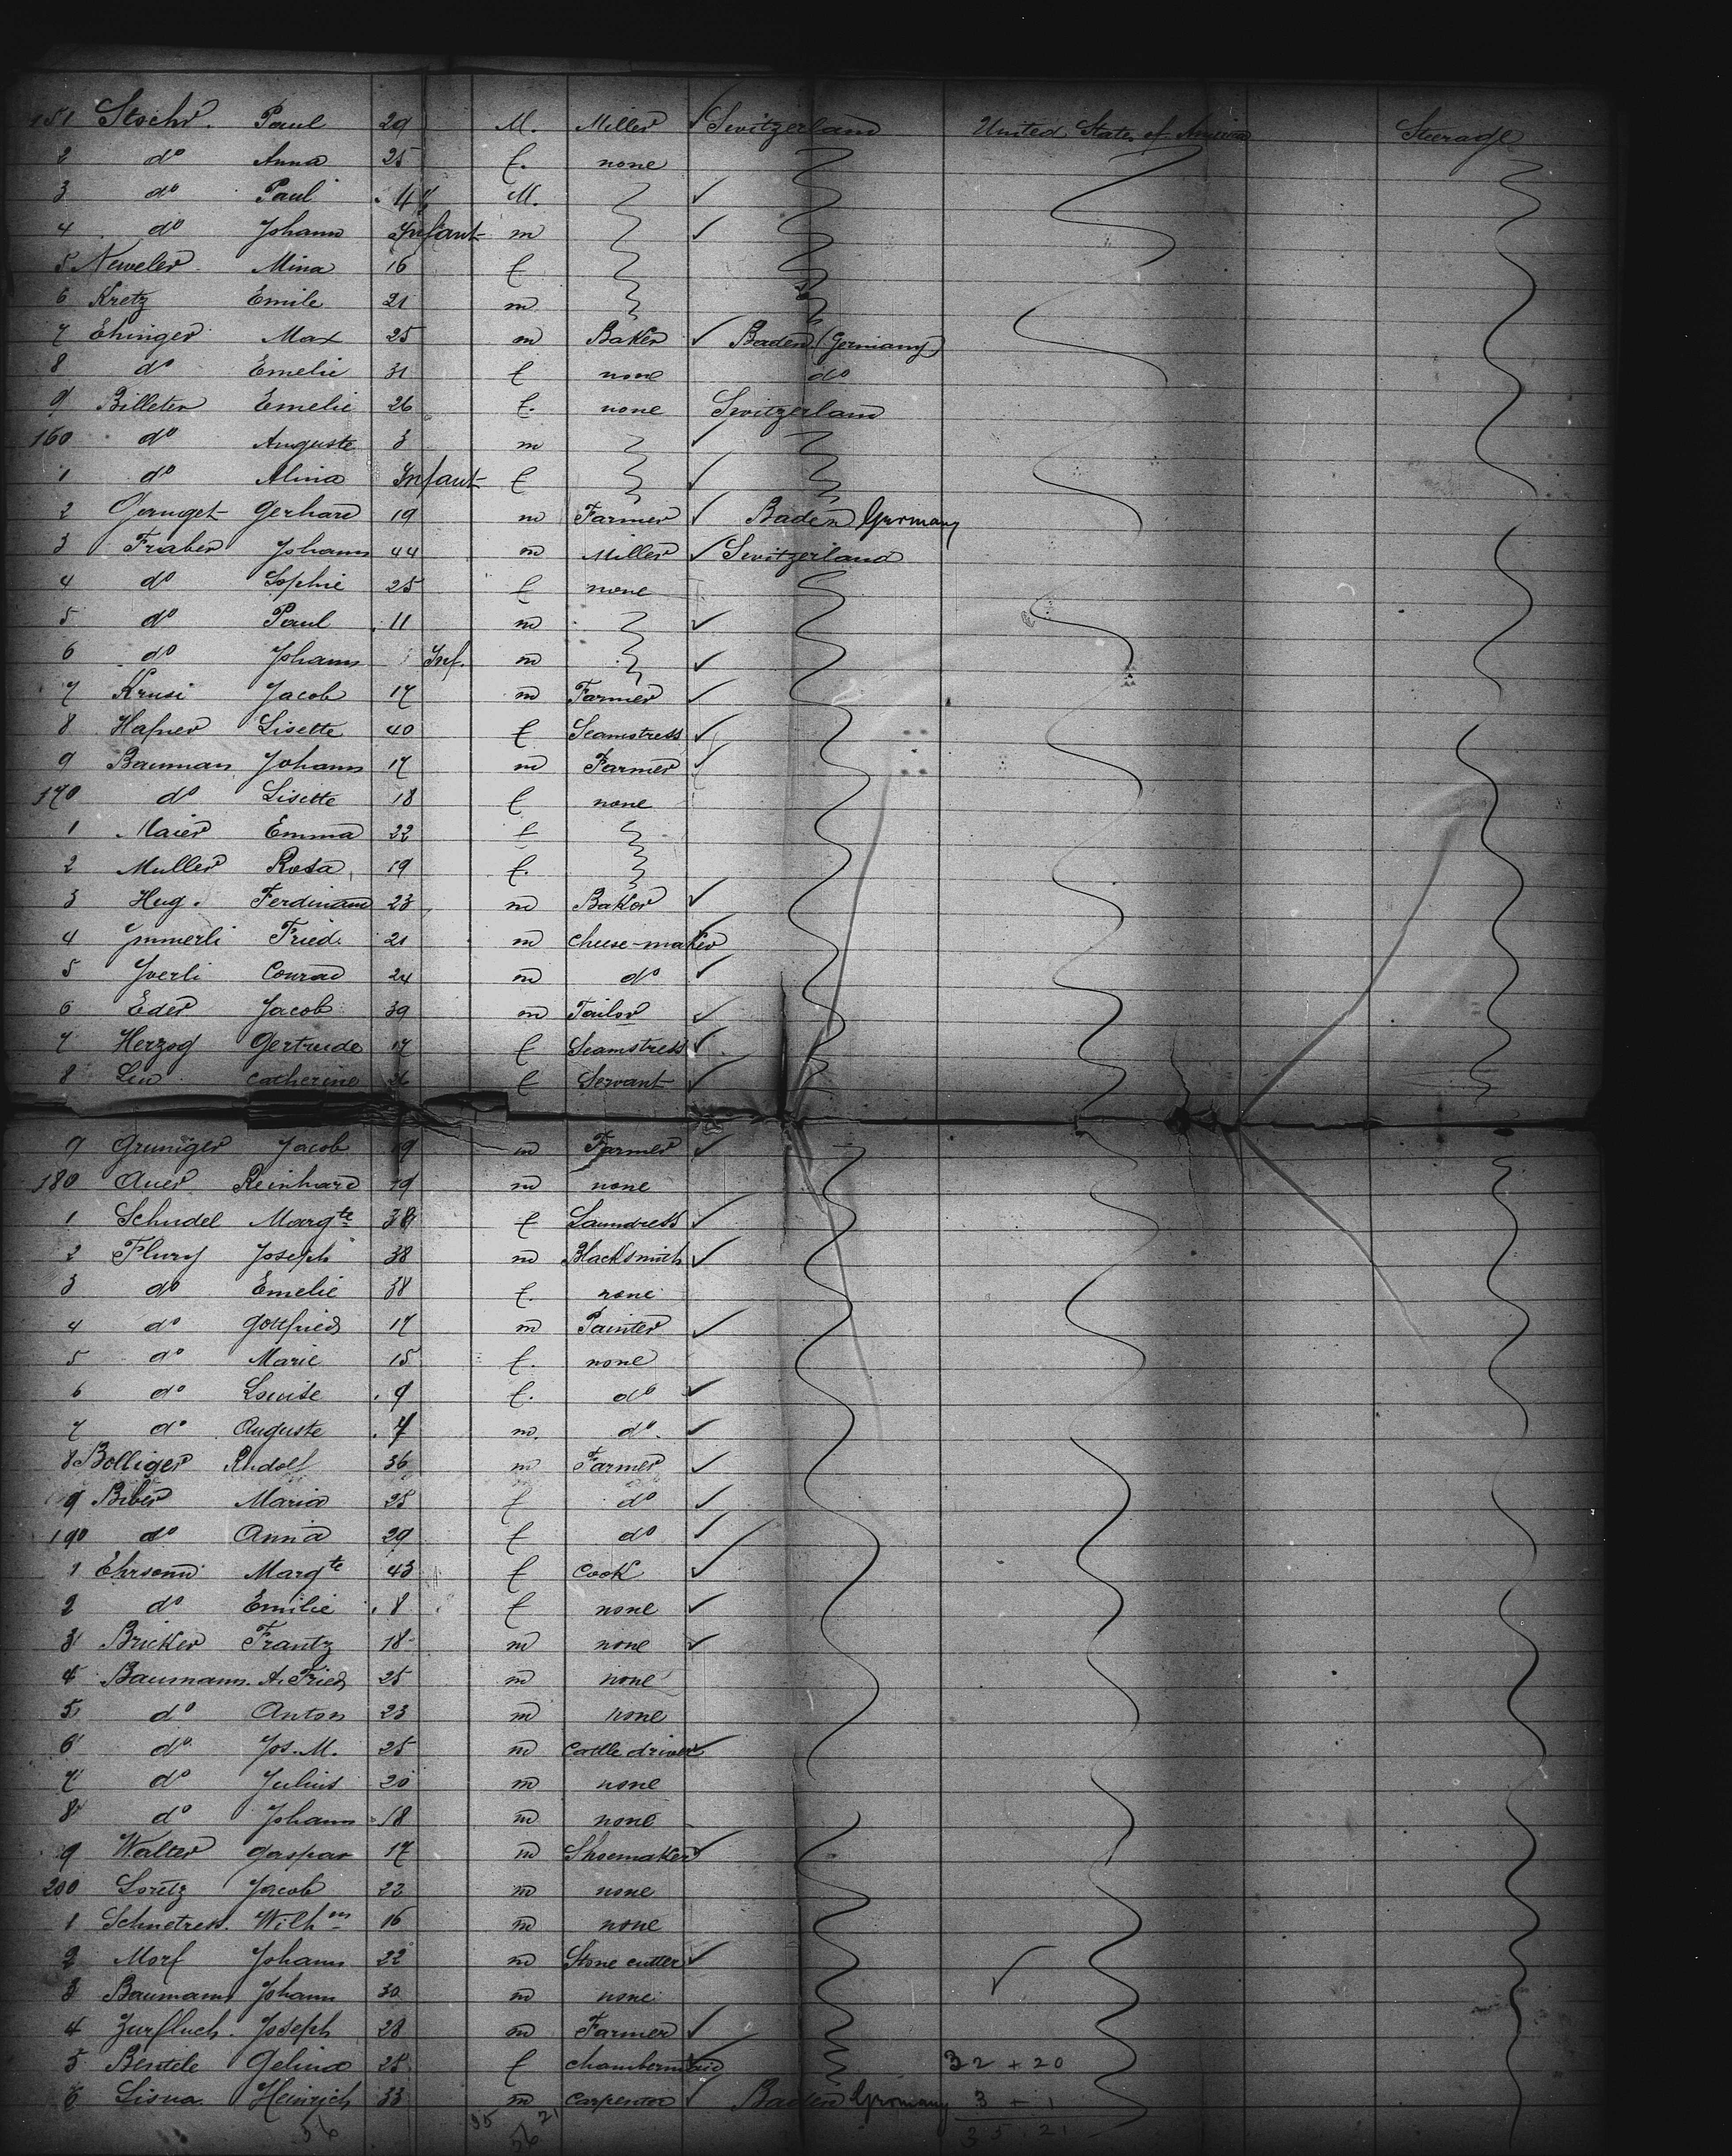 151 Stochr. Paul 29 M. Miller ✓ Switzerland United States of America Steerage
2 do Anna 25 f. none
3 do Paul 4 M. ✓
4 do Johann Infant m ✓
5 Neweler Mina 16 f
6 Kretz Emile 21 m
7 Ehinger Max 25 m Baker ✓ Baden (Germany)
8 do Emelie 31 f none do
9 Billeter Emelie 26 f. none Switzerland
160 do Auguste 3 m ✓
1 do Alina Infant f ✓
2 Gerhard 19 m Farmer ✓ Baden Germany
3 Fraber Johann 44 m Miller ✓ Switzerland
4 do Sophie 25 f none
5 do Paul 11 m ✓
6 do Johann Inf. m ✓
7 Krusi Jacob 17 m Farmer ✓
8 Hafner Lisette 40 f Seamstress ✓
9 Bauman Johann 17 m Farmer ✓
170 do Lisette 18 f none
1 Maier Emma 22 f
2 Muller Rosa 19 f.
3 Hug. Ferdinand 23 m Baker ✓
4 Ymmerli Fried. 21 m cheese-maker ✓
5 Yverli Conrad 24 m do ✓
6 Eder Jacob 39 m Tailor ✓
7 Herzog Gertrude 17 f Seamstress ✓
8 Catherine 26 f Servant ✓
9 Gruniger Jacob 19 m Farmer ✓
180 Auer Reinhard 19 m none
1 Schudel Margte 38 f Laundress ✓
2 Flury Joseph 38 m Blacksmith ✓
3 do Emelie 38 f. none
4 do Gottfried 17 m Painter ✓
5 do Marie 15 f. none
6 do Louise 9 f. do ✓
7 do Auguste 7 m. do. ✓
8 Bolliger Rudolf 36 m Farmer ✓
9 Biber Maria 25 f do ✓
190 do Anna 29 f do ✓
1 Ehrsam Margte 43 f Cook ✓
2 do Emilie 8 f none ✓
3 Bricker Frantz 18 m none ✓
4 Baumann. A. Fried 25 m none
5 do Anton 23 m none
6 do Jos. M. 25 m Cattle driver ✓
7 do Julius 20 m none
8 do Johann 18 m none
9 Walter Gaspar 17 m Shoemaker ✓
200 Loretz Jacob 22 m none
1 Wilhm 16 m none
2 Morf Johann 22 m Stone cutter ✓
3 Baumann Johann 30 m none ✓
4 Zurfluch. Joseph 28 m Farmer ✓
5 Bentele Gelina 25 f Chambermaid 32 + 20
6 Lisna Heinrich 33 m Carpenter ✓ Baden Germany 3 + 1
56 35 21 56 35 . 21